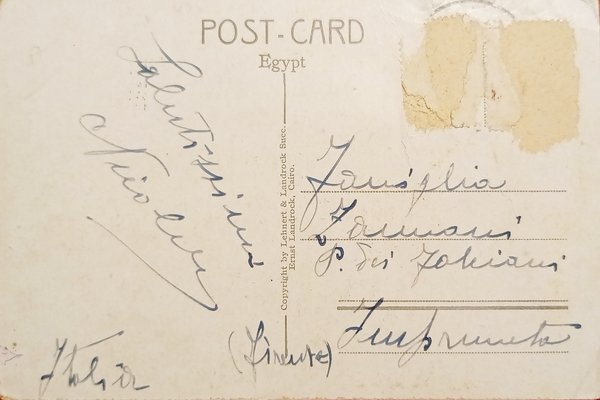 POST-CARD
Egypt
Salutissimi
Copyright by Lehnert & Landrock Succ.
Ernst Landrock, Cairo.
Famiglia
Zamani
P. dei
Impruneta
(Firenze)
Italia